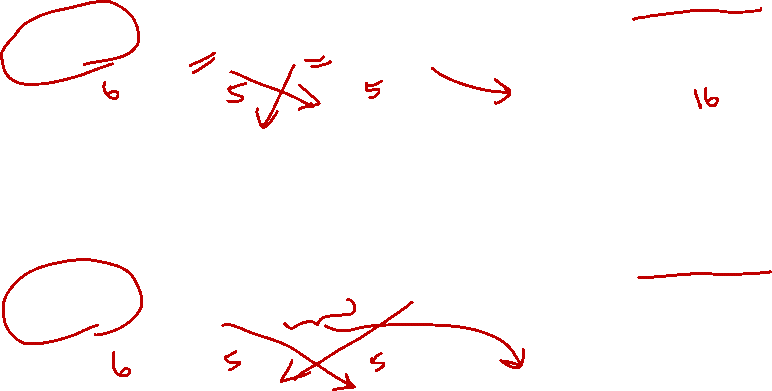 6 = 5 = 5 16
6 5 5